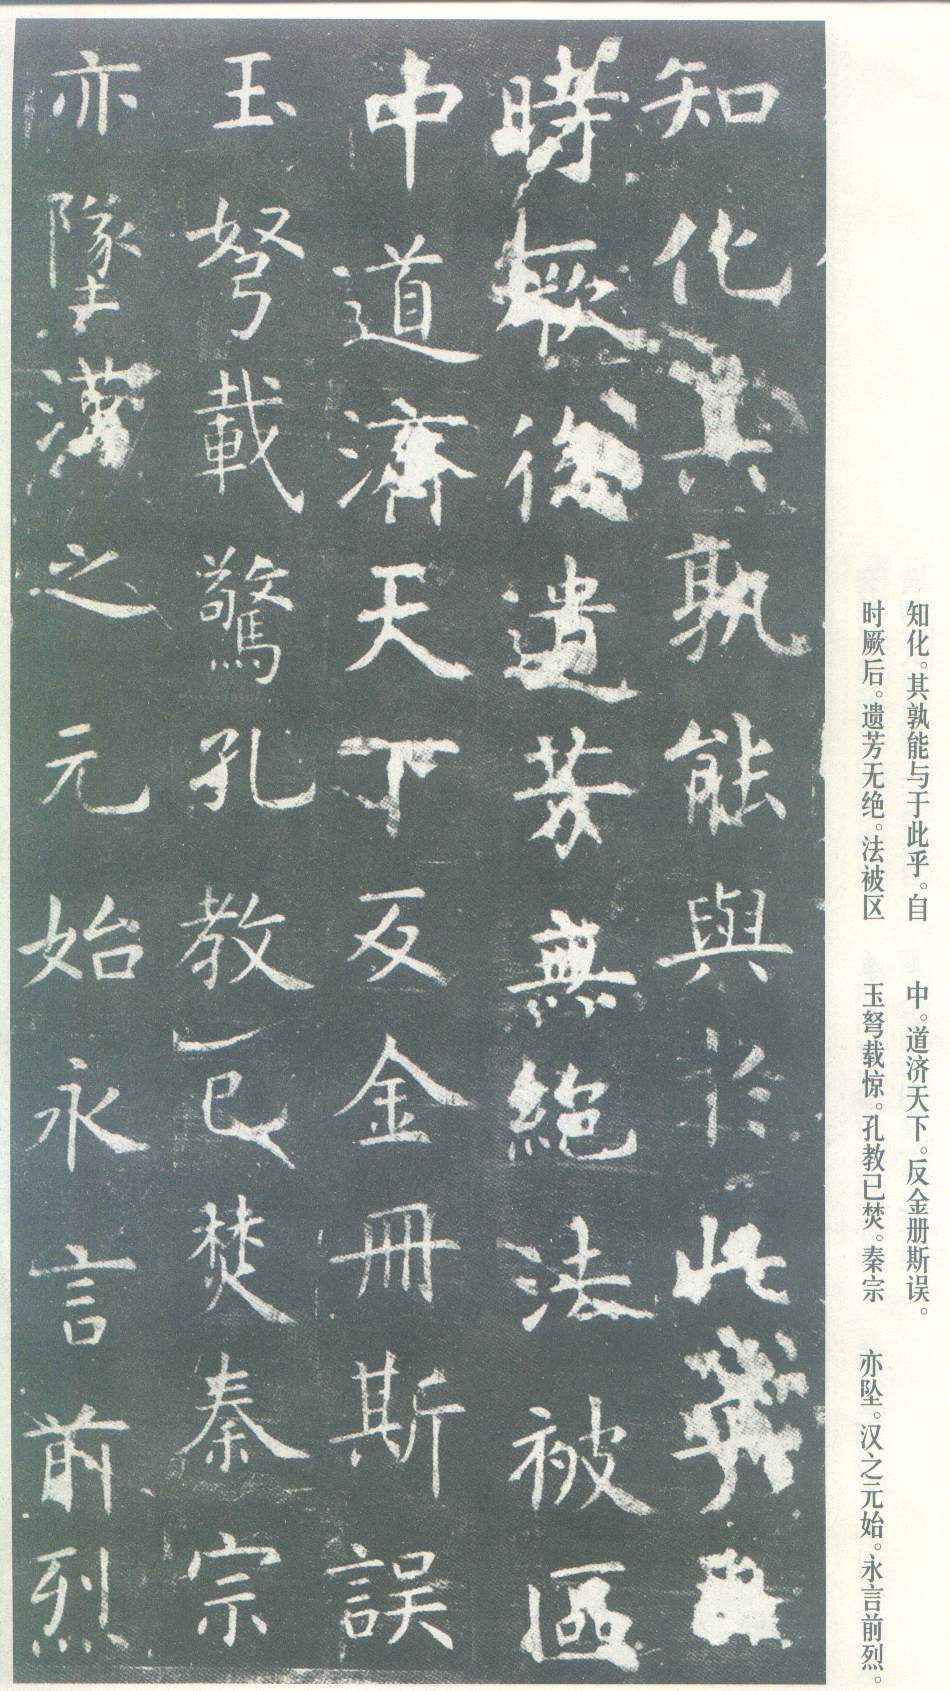 知化其孰能與於此乎自
時厥後遺芳無絶法被區
中道濟天下反金冊斯誤
玉弩載驚孔教已焚秦宗
亦墜漢之元始永言前烈
知化。其孰能与于此乎。自
时厥后。遗芳无绝。法被区
中。道济天下。反金册斯误。
玉弩载惊。孔教已焚。秦宗
亦坠。汉之元始。永言前烈。